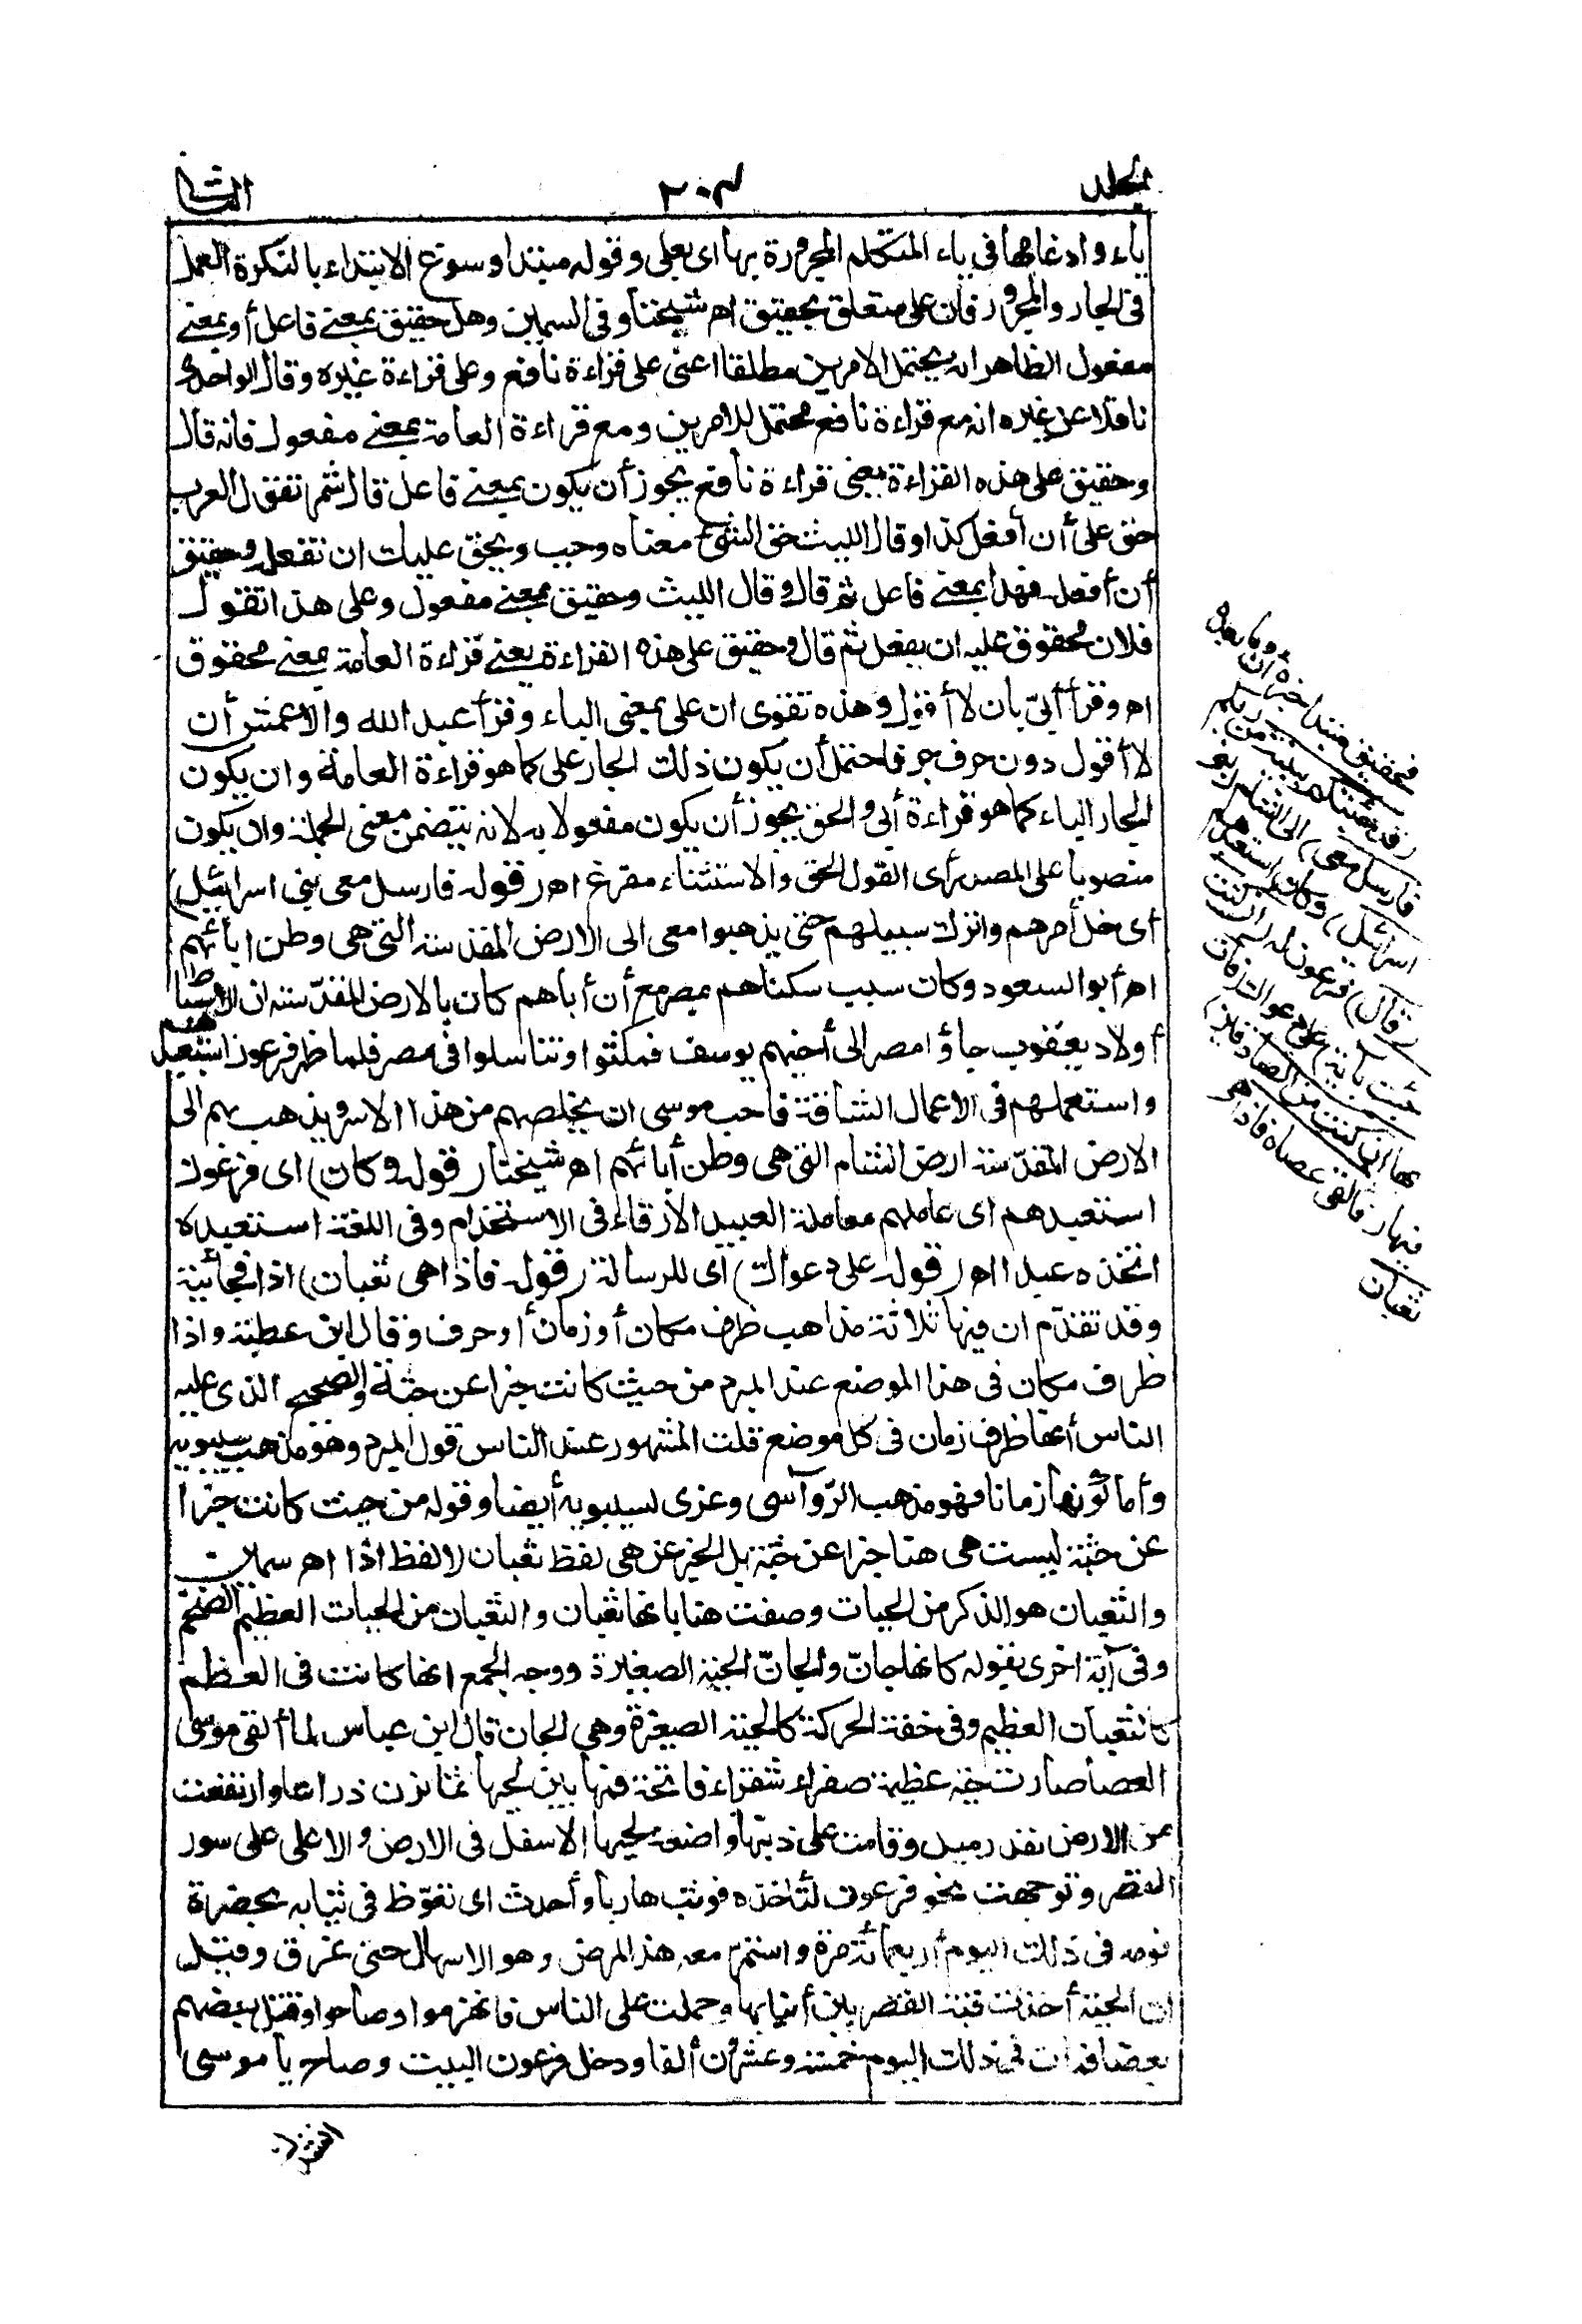 الجلد
٢٠٣
الثانى
ياء وادغامها فى ياء المتكلم المجرورة بها اى بعلى وقوله مبتدا وسوغ الابتداء بالنكرة العمل
فى الجار والمجرور فان على متعلق بحقيق اهـ شيخنا وفى السمين وهل حقيق بمعنى فاعل أو بمعنى
مفعول الظاهر انه يحتمل الامرين مطلقا اعنى على قراءة نافع وعلى قراءة غيره وقال الواحدى
ناقلا عن غيره انه مع قراءة نافع محتمل للامرين ومع قراءة العامة بمعنى مفعول فانه قال
وحقيق على هذه القراءة يعنى قراءة نافع يجوز أن يكون بمعنى فاعل قال شمر تقول العرب
حق على أن أفعل كذا وقال الليث حق الشئ معناه وجب ويحق عليك ان تفعل وحقيق
أن أفعل فهذا بمعنى فاعل ثم قال وقال الليث وحقيق بمعنى مفعول وعلى هذا تقول
فلان محقوق عليه ان يفعل ثم قال وحقيق على هذه القراءة يعنى قراءة العامة بمعنى محقوق
اهـ وقرأ أبىّ بان لا أقول وهذه تقوى ان على بمعنى الباء وقرأ عبد الله والاعمش أن
لا أقول دون حرف جر فاحتمل أن يكون ذلك الجار على كما هو قراءة العامة وان يكون
الجار الباء كما هو قراءة أبى والحق يجوز أن يكون مفعولا به لانه يتضمن معنى الجملة وان يكون
منصوبا على المصدر أى القول الحق والاستثناء مفرغ اهـ (قوله فارسل معى بنى اسرائيل)
أى خل أمرهم واترك سبيلهم حتى يذهبوا معى الى الارض المقدسة التى هى وطن ابائهم
اهـ أبو السعود وكان سبب سكناهم بمصر مع أن أباهم كان بالارض المقدّسة ان الاسباط
أولاد يعقوب جاؤا مصر الى أخيهم يوسف فمكثوا وتناسلوا فى مصر فلما ظهر فرعون استعبدهم
واستعملهم فى الاعمال الشاقة فاحب موسى ان يخلصهم من هذا الاسر ويذهب بهم الى
الارض المقدّسة ارض الشام التى هى وطن أبائهم اهـ شيخنا (قوله وكان) اى فرعون
استعبدهم اى عاملهم معاملة العبيد الأرقاء فى الاستخدام وفى اللغة استعبده
اتخذه عبدا اهـ (قوله على دعواك) اى للرسالة (قوله فاذا هى ثعبان) اذا فجائية
وقد تقدّم ان فيها ثلاثة مذاهب ظرف مكان أو زمان أو حرف وقال ابن عطية واذا
ظرف مكان فى هذا الموضع عند المبرد من حيث كانت خبرا عن جثة والصحيح الذى عليه
الناس أنها ظرف زمان فى كل موضع قلت المشهور عند الناس قول المبرد وهو مذهب سيبويه
وأما كونها زمانا فهو مذهب الرّواسى وعزى لسيبويه أيضا وقوله من حيث كانت خبرا
عن جثة ليست هى هنا خبرا عن جثة بل الخبر عن هى لفظ ثعبان لا لفظ اذا اهـ سمين
والثعبان هو الذكر من الحيات وصفت هنا بانها ثعبان والثعبان من الحيات العظيم الضخم
وفى آية اخرى بقوله كانها جانّ والجانّ الحية الصغيرة ووجه الجمع انها كانت فى العظم
كالثعبان العظيم وفى خفة الحركة كالحية الصغيرة وهى الجان قال ابن عباس لما ألقى موسى
العصا صارت حية عظيمة صفراء شقراء فاتحة فمها بين لحييها ثمانون ذراعا وارتفعت
من الارض بقدر ميل وقامت على ذنبها واضعة لحيها الاسفل فى الارض والاعلى على سور
القصر وتوجهت نحو فرعون لتاخذه فوثب هاربا وأحدث اى تغوّط فى ثيابه بحضرة
قومه فى ذلك اليوم أربعمائة مرة واستمرّ معه هذا المرض وهو الاسهال حتى غرق وقيل
ان الحية أخذت قبة القصر بين أنيابها وحملت على الناس فانهزموا وصاحوا وقتل بعضهم
بعضا فمات فى ذلك اليوم خمسة وعشرون ألفا ودخل فرعون البيت وصاح يا موسى
فحقيق مبتدا خبره ان وما بعده
(قد جئتكم ببينة من ربكم
فارسل معى) الى الشام (بنى
اسرائيل) وكان استعبدهم
(قال) فرعون له (ان كنت
جئت بآية) على دعواك (فات
بها ان كنت من الصادقين)
فيها (فالقى عصاه فاذا هى
ثعبان